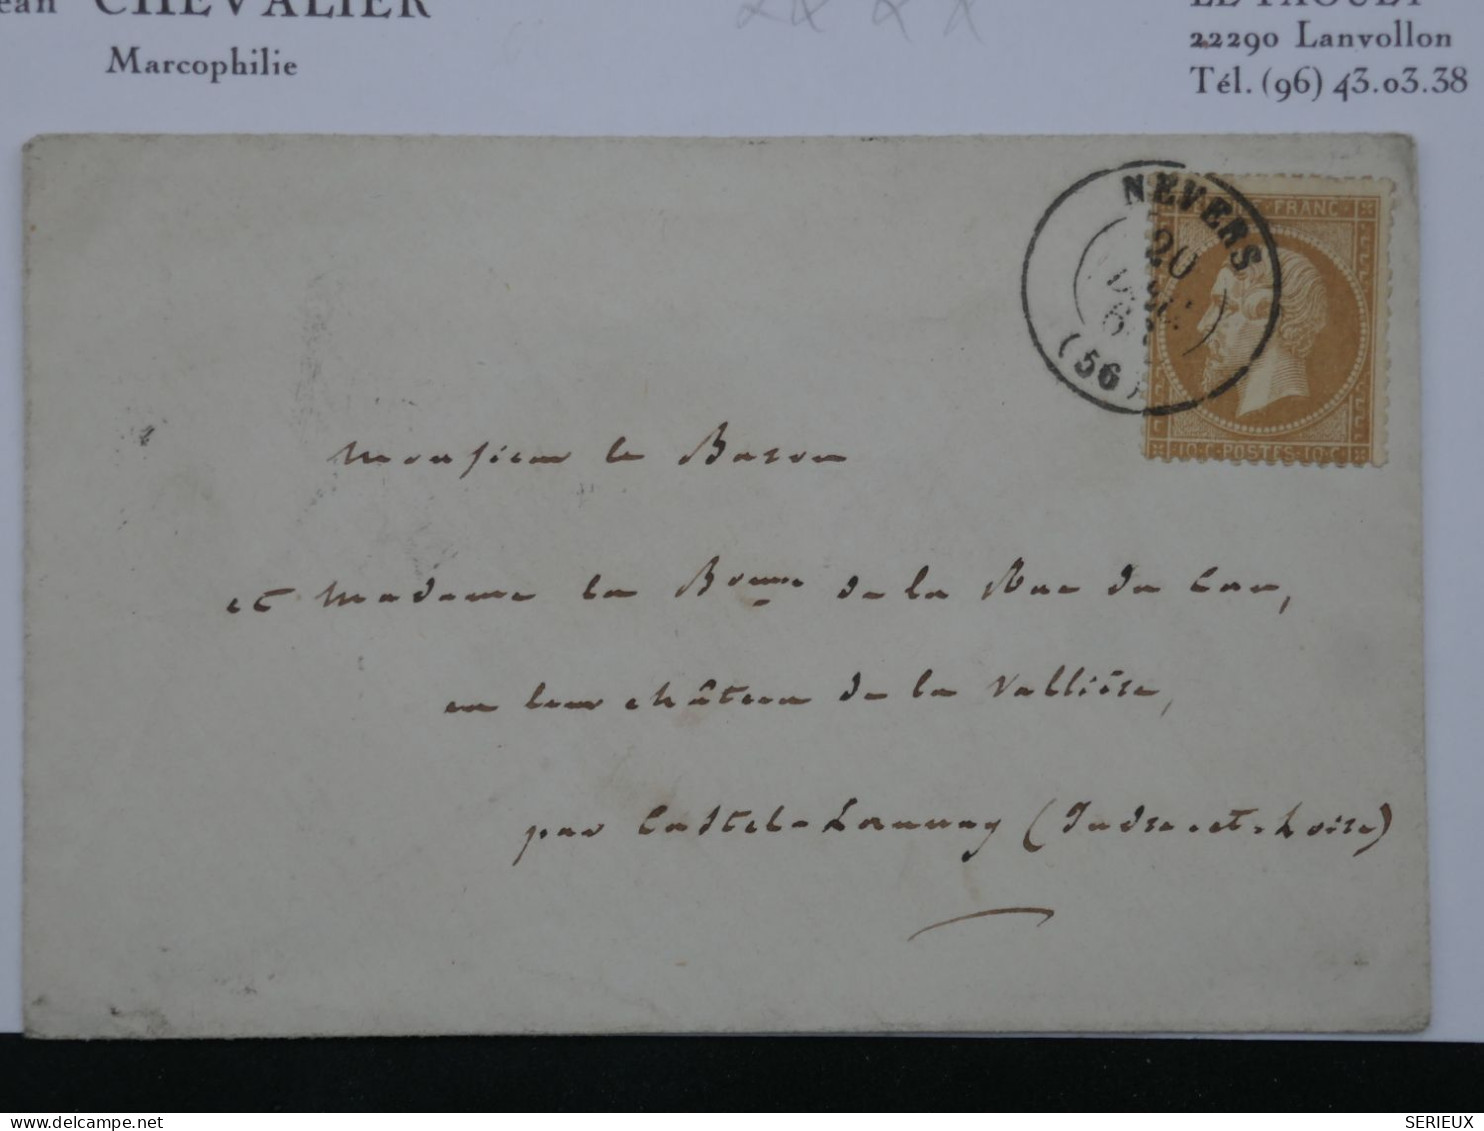 ean CHEVALIER
Marcophilie
LE FAOUET
22290 Lanvollon
Tél. (96) 43.03.38
NEVERS
20
(56)
FRANC
10·C·POSTES·10·C
Monsieur le Baron
et Madame la Bonne de la Rue du Can,
en leur château de la Vallière,
par Castel-Launay (Indre-et-Loire)
www.delcampe.net
SERIEUX